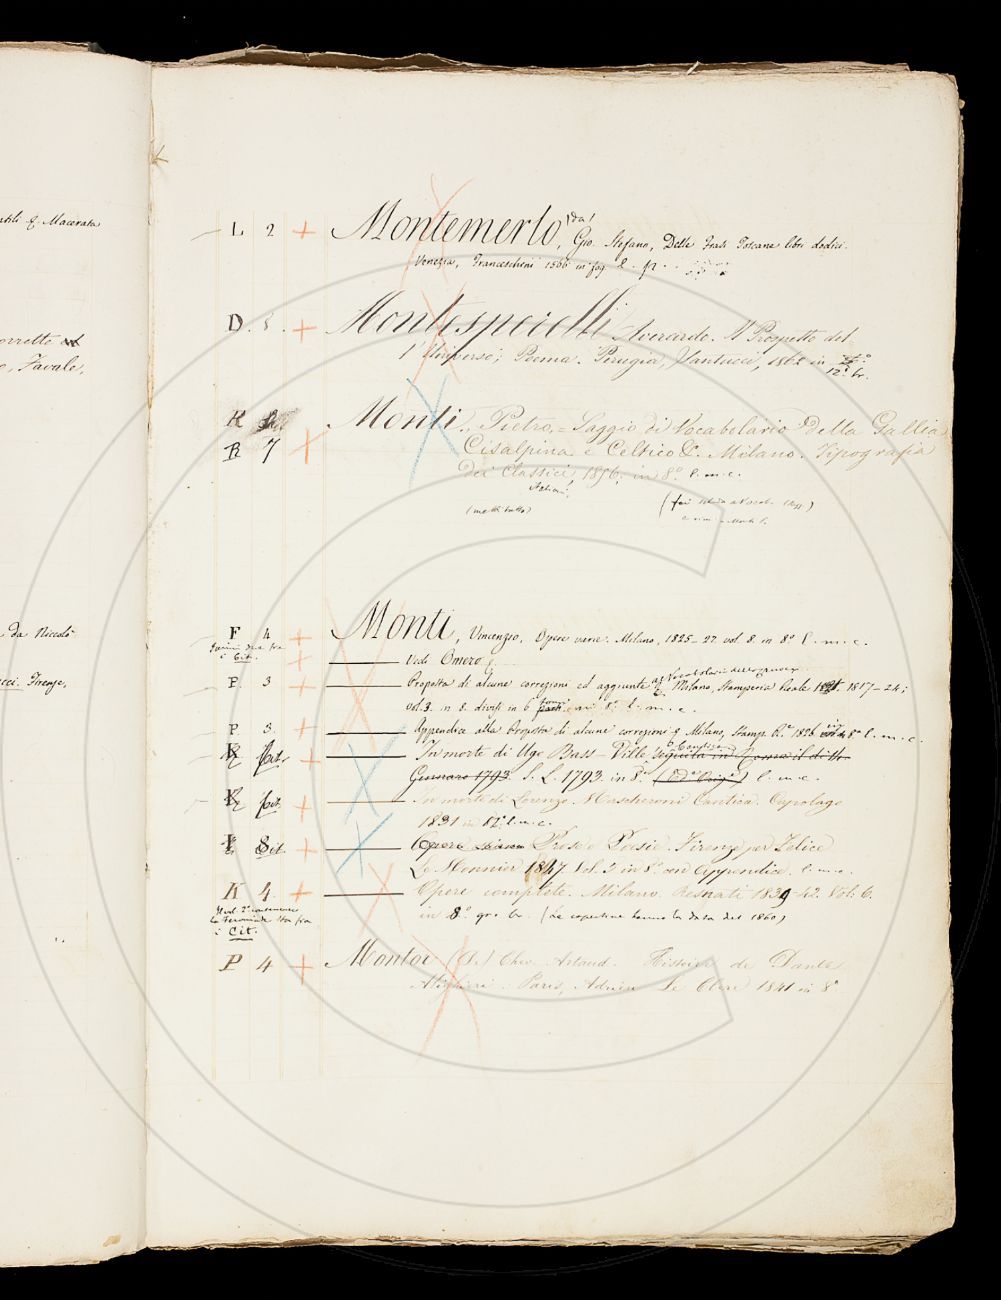 atili f. Macerata
L 2 + Montemerlo (da), Gio. Stefano, Delle frasi Toscane libri dodici.
Venezia, Franceschini 1566 in fog.
D. + Montesperelli Averardo. Il Prospetto del
l'Universo; Poema. Perugia, Santucci, 1862 in
12° br.
orretto
o, Favale,
R
R 7 + Monti, Pietro = Saggio di Vocabolario della Gallia
Cisalpina e Celtico &. Milano. Tipografia
dei Classici, 1856, in 8° l. m. c.
Italiani,
(metti tutto)
F 4 + Monti, Vincenzo, Opere varie. Milano, 1825-27 vol. 8. in 8° l. m. c.
i Cit. + Vedi Omero
da Niccolò
P. 3 + Proposta di alcune correzioni ed aggiunte al Vocabolario della Crusca. Milano, Stamperia Reale 1817-24;
vol. 3. in 8. divisi in 6 tomi in 8° l. m. c.
cci. Firenze,
P 3. + Appendice alla Proposta di alcune correzioni &. Milano, Stamp. R.e 1826 in 8° l. m. c.
Cit. + In morte di Ugo Bass-Ville Cantica seguita in Roma il dì 14.
Gennaro 1793. S. L. 1793. in 8° l. m. c.
Cit. + In morte di Lorenzo Mascheroni Cantica. Capolago
1831 in 12° l. m. c.
8 Cit. + Opere Prose e Poesie. Firenze per Felice
Le Monnier 1847. Vol. 5 in 8° con Appendice. l. m. c.
K 4. + Opere complete. Milano. Resnati 1839-42. Vol. 6.
in 8° gr. br. (Le copertine hanno la data del 1860)
Il vol. 2° contenente
la Feroniade sta fra
i Cit.
P 4 + Montor (De) Chev. Artaud. Histoire de Dante
Alighieri. Paris, Adrien Le Clere 1841 in 8°